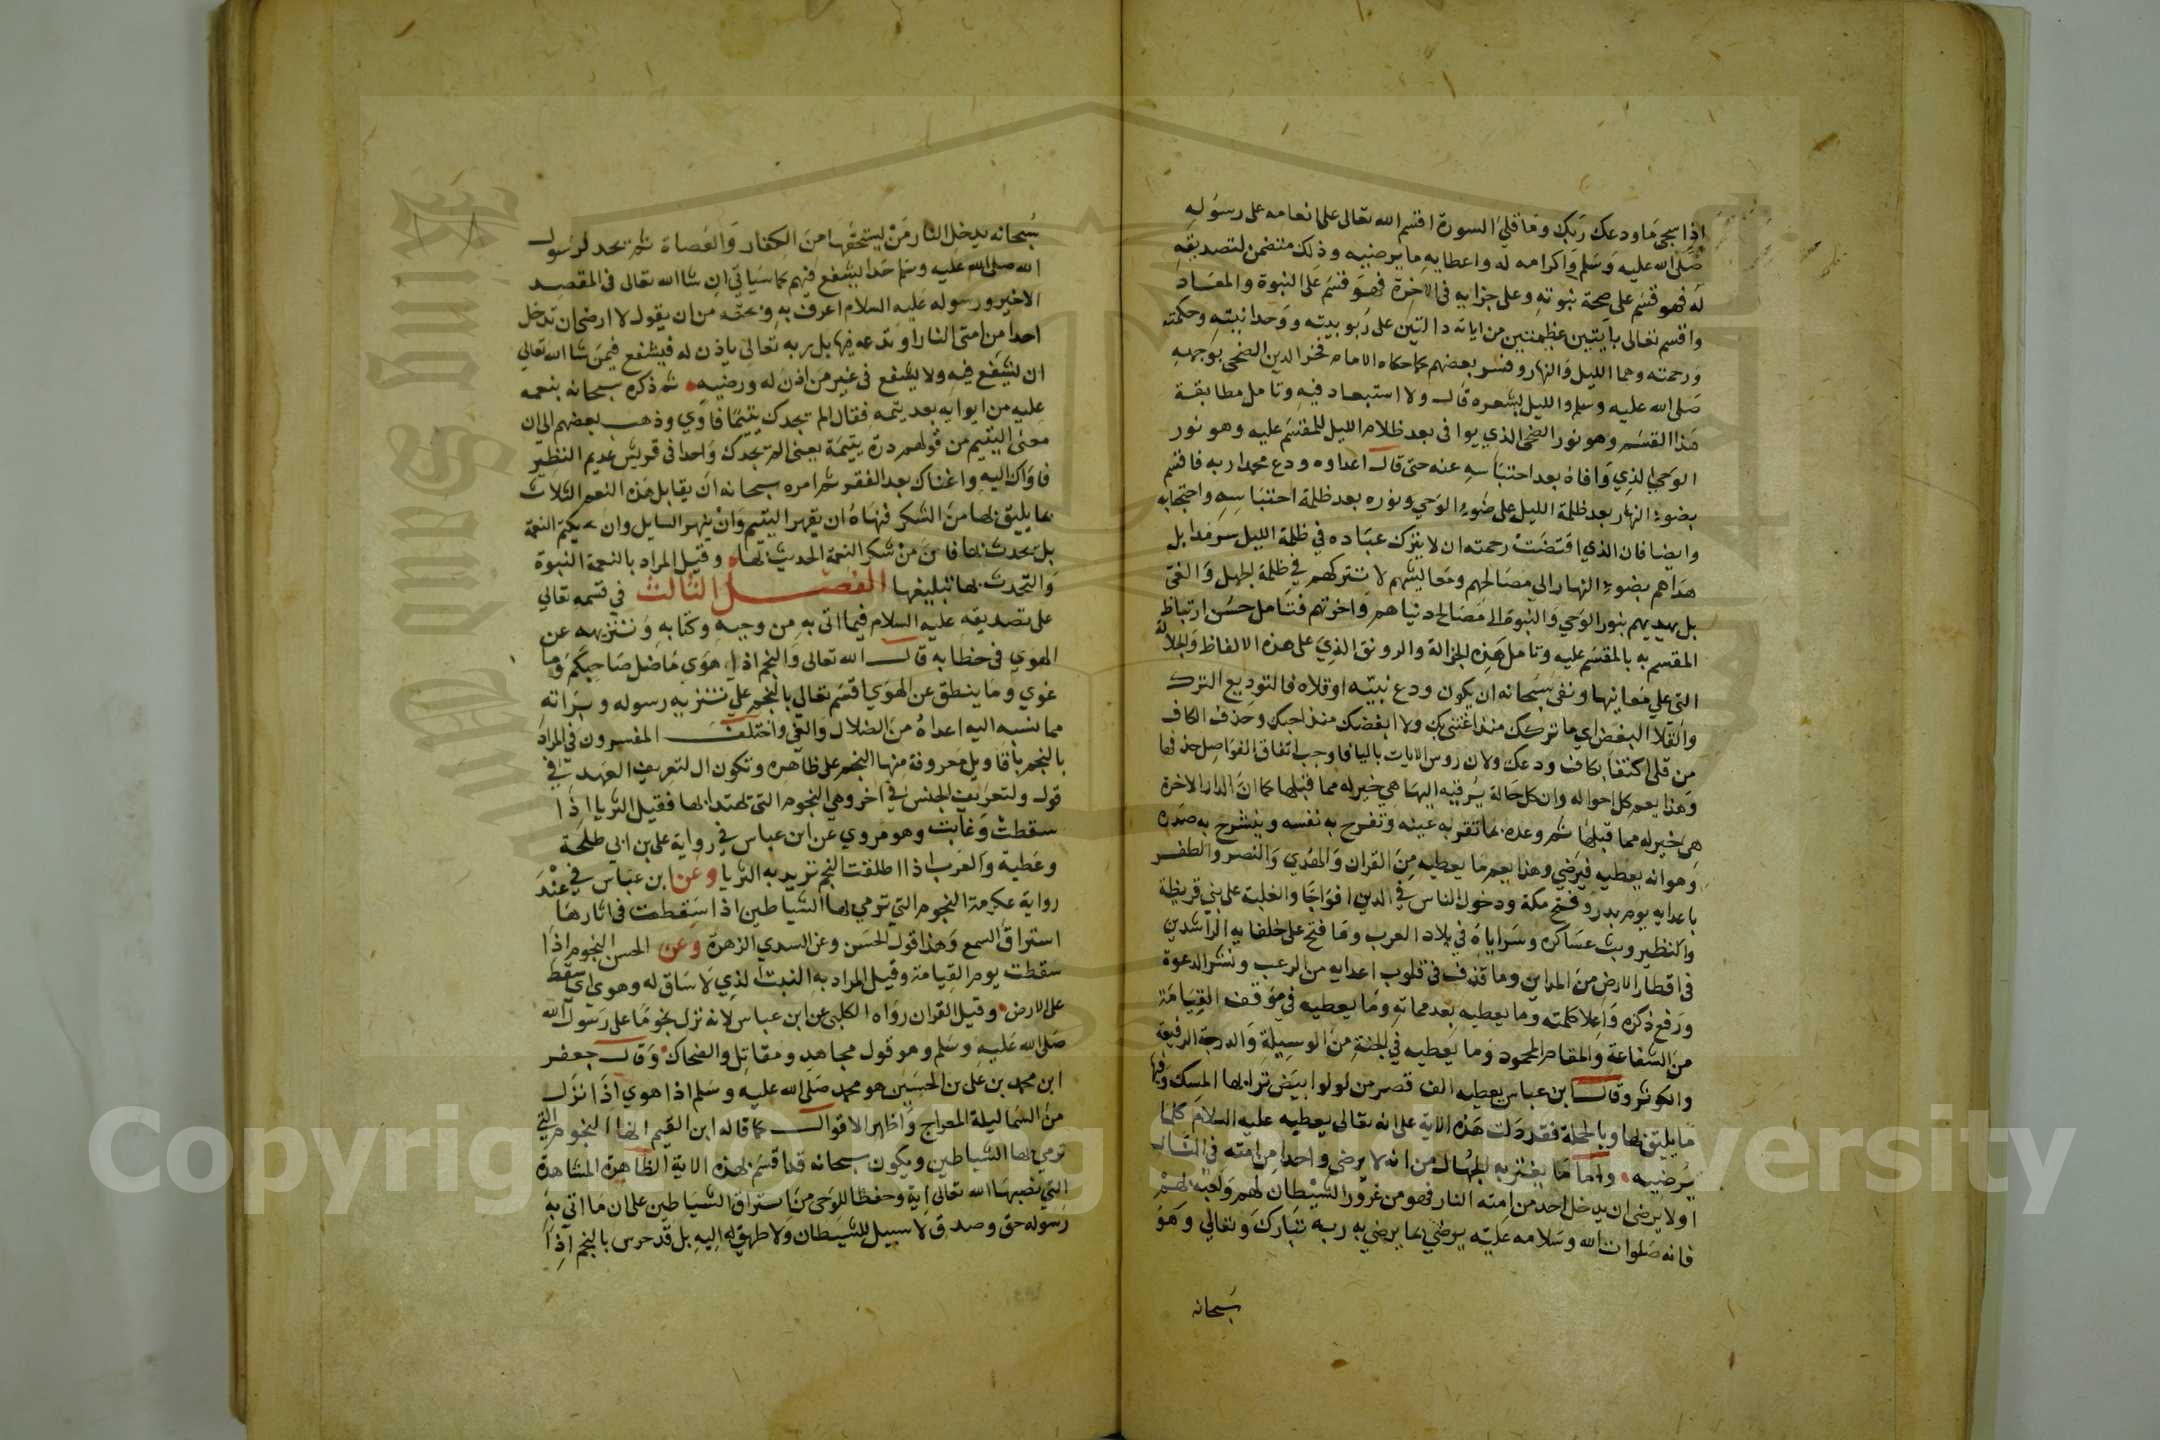 اذا سجى ما ودعك ربك وما قلي السورة اقسم الله تعالى على انعامه على رسوله
صلى الله عليه وسلم واكرامه له واعطايه ما يرضيه وذلك متضمن لتصديقه
له فهو قسم على صحة نبوته وعلى جزايه في الاخرة فهو قسم على النبوة والمعاد
واقسم تعالى بايتين عظيمتين من اياته دالتين على ربوبيته ووحدانيته وحكمته
ورحمته وهما الليل والنهار وفسر بعضهم كما حكاه الامام فخر الدين الضحى بوجهه
صلى الله عليه وسلم والليل بشعره قال ولا استبعاد فيه وتامل مطابقة
هذا القسم وهو نور الضحى الذي يوافى بعد ظلام الليل للمقسم عليه وهو نور
الوحي الذي وافاه بعد احتباسه عنه حتى قال اعداوه ودع محمدا ربه فاقسم
بضوء النهار بعد ظلمة الليل على ضوء الوحي ونوره بعد ظلمة احتباسه واحتجابه
وايضا فان الذي اقتضت رحمته ان لا يترك عباده في ظلمة الليل سرمدا بل
هداهم بضوء النهار الي مصالحهم ومعايشهم لا يتركهم في ظلمة الجهل والغي
بل يهديهم بنور الوحي والنبوة الى مصالح دنياهم واخرتهم فتامل حسن ارتباط
المقسم به بالمقسم عليه وتامل هذه الجزالة والرونق الذي على هذه الالفاظ والجلالة
التي علي معانيها ونفى سبحانه ان يكون ودع نبيه او قلاه فالتوديع الترك
والقلا البغض اي ما تركك منذ اعتنى بك ولا ابغضك منذ احبك وحذف الكاف
من قلى اكتفا بكاف ودعك ولان روس الايات باليا فاوجب اتفاق الفواصل حذفها
وهذا يعم كل احواله وان كل حالة يرقيه اليها هي خير له مما قبلها كما ان الدار الاخرة
هي خير له مما قبلها ثم وعده بما تقر به عينه وتفرح به نفسه وينشرح به صدره
وهو انه يعطيه فيرضي وهذا يعم ما يعطيه من القران والهدي والنصر والظفر
باعدايه يوم بدر وفتح مكة ودخول الناس في الدين افواجا والغلبة على بني قريظة
والنظير وبث عساكره وسراياه في بلاد العرب وما فتح على خلفايه الراشدين
في اقطار الارض من المداين وما قذف في قلوب اعدايه من الرعب ونشر الدعوة
ورفع ذكره واعلا كلمته وما يعطيه بعد مماته وما يعطيه في موقف القيامة
من الشفاعة والمقام المحمود وما يعطيه في الجنة من الوسيلة والدرجة الرفيعة
والكوثر وقال ابن عباس يعطيه الف قصر من لولو ابيض ترابها المسك وفيها
ما يليق بها وبالجملة فقد دلت هذه الاية على انه تعالى يعطيه عليه السلام كلما
يرضيه واما ما يغتر به الجهال من انه لا يرضي واحدا من امته في النار
او لا يرضى ان يدخل احد من امته النار فهو من غرور الشيطان لهم ولعبه لهم
فانه صلوات الله وسلامه عليه يرضي بما يرضي به ربه تبارك وتعالي وهو
سبحانه
سبحانه يدخل النار من يستحقها من الكفار والعصاة ثم يحد لرسول
الله صلى الله عليه وسلم حدا يشفع فيهم كما سياتي ان شا الله تعالى في المقصد
الاخير ورسوله عليه السلام اعرف به وبحقه من ان يقول لا ارضى ان تدخل
احدا من امتى النار او تدعه فيها بل ربه تعالى ياذن له فيشفع فيمن شا الله تعالي
ان يشفع فيه ولا يشفع في غير من اذن له ورضيه ثم ذكره سبحانه بنعمه
عليه من ايوايه بعد يتمه فقال الم تجدك يتيما فاوي وذهب بعضهم الى ان
معنى اليتيم من قولهم درة يتيمة بمعنى الم تجدك واحدا في قريش عديم النظير
فاواك اليه واغناك بعد الفقر ثم امره سبحانه ان يقابل هذه النعم الثلاث
بما يليق بها من الشكر فنهاه ان يقهر اليتيم وان ينهر السايل وان يكتم النعمة
بل يحدث بها فان من شكر النعمة الحديث بها وقيل المراد بالنعمة النبوة
والتحدث بها تبليغها الفصل الثالث في قسمه تعالي
على تصديقه عليه السلام فيما اتى به من وحيه وكتابه وتنزيهه عن
الهوي في خطابه قال الله تعالى والنجم اذا هوى ما ضل صاحبكم وما
غوي وما ينطق عن الهوي اقسم تعالي بالنجم علي تنزيه رسوله وبراته
مما نسبه اليه اعداه من الضلال والغي واختلف المفسرون في المراد
بالنجم باقاويل معروفة منها النجم على ظاهره وتكون ال لتعريف العهد في
قول ولتعريف الجنس في اخر وهي النجوم التي يهتدا بها فقيل الثريا اذا
سقطت وغابت وهو مروي عن ابن عباس في رواية علي بن ابي طلحة
وعطية والعرب اذا اطلقت النجم تريد به الثريا وعن ابن عباس في عند
رواية عكرمة النجوم التي ترمي بها الشياطين اذا سقطت في اثارها
استراق السمع وهذا قول الحسن وعن السدي الزهرة وعن الحسن النجوم اذا
سقطت يوم القيامة وقيل المراد به النبت الذي لا ساق له وهوي اي سقط
على الارض وقيل القران رواه الكلبي عن ابن عباس لانه نزل نجوما على رسول الله
صلى الله عليه وسلم وهو قول مجاهد ومقاتل والضحاك وقال جعفر
ابن محمد بن علي بن الحسين هو محمد صلى الله عليه وسلم اذا هوي اذا نزل
من السما ليلة المعراج واظهر الاقوال كما قاله ابن القيم انها النجوم التي
ترمي بها الشياطين ويكون سبحانه قد اقسم بهذه الاية الظاهرة المشاهدة
التي نصبها الله تعالى اية وحفظا للوحى من استراق الشياطين على ان ما اتى به
رسوله حق وصدق لا سبيل للشيطان ولا طريق له اليه بل قد حرس بالنجم اذا
Copyright © King Saud University